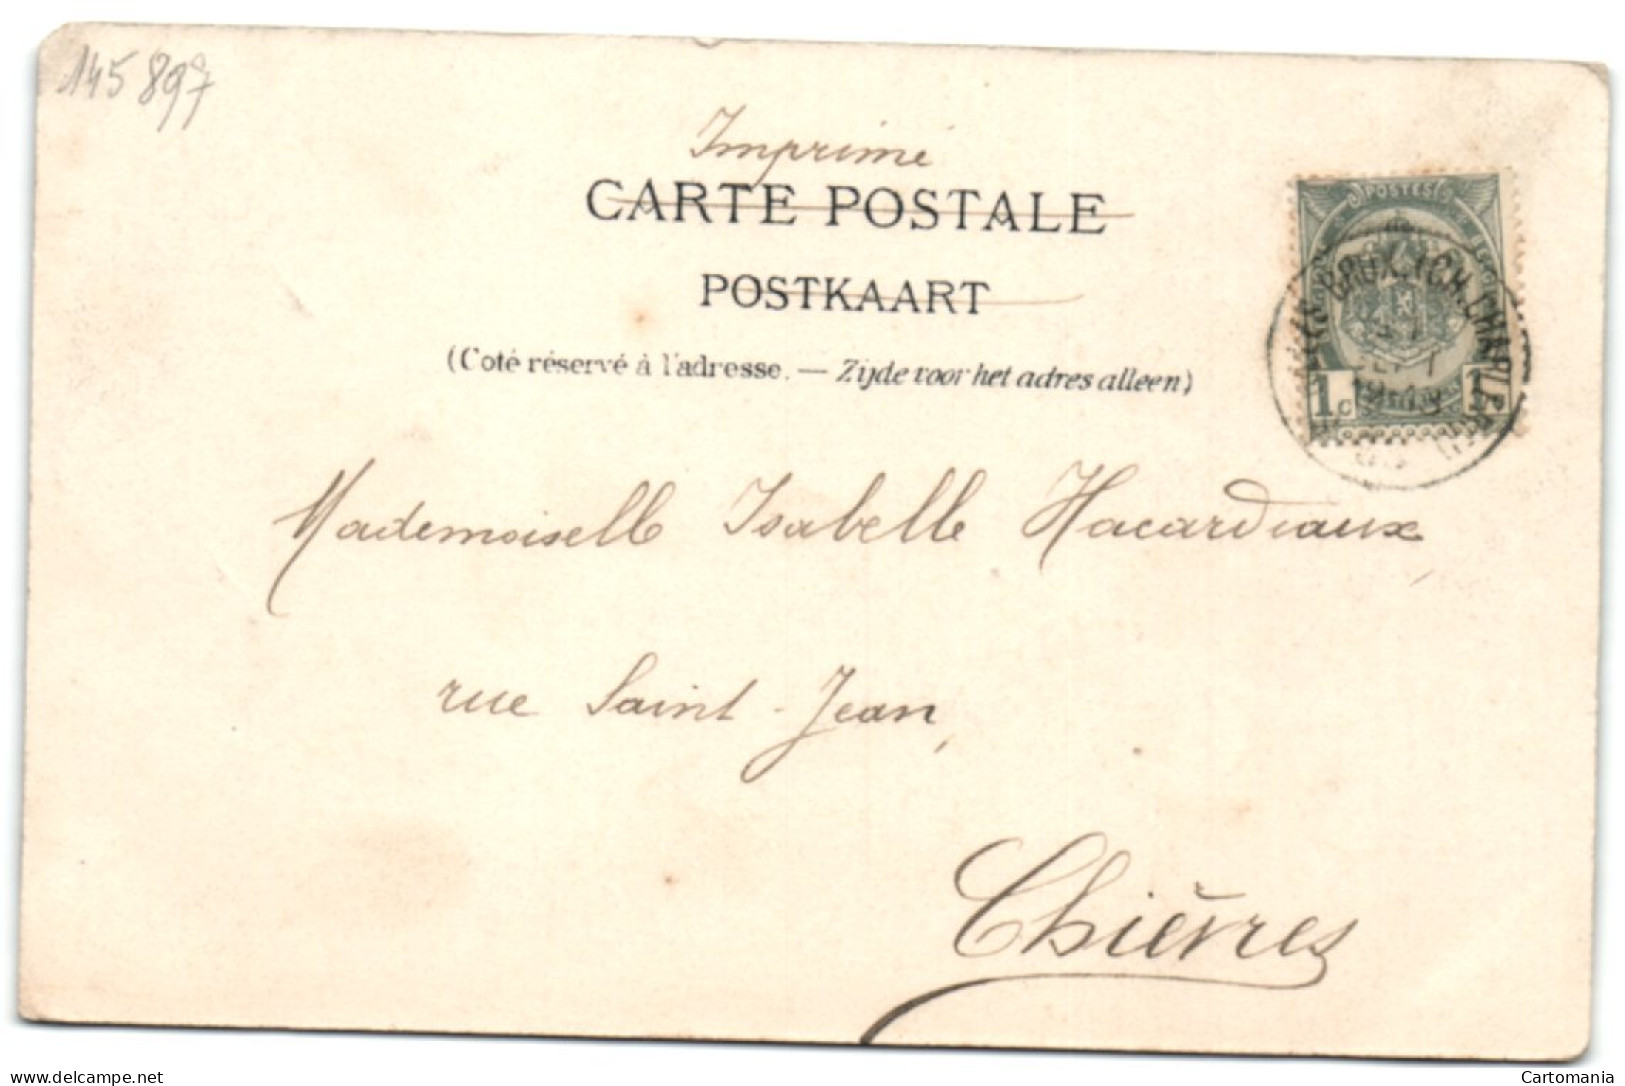 145897
Imprimé
CARTE POSTALE
POSTKAART
(Coté réservé à l'adresse. — Zijde voor het adres alleen)
POSTES
BRUX.
1c 1
Mademoiselle Isabelle Hacardiaux,
rue Saint-Jean,
Chièvres
www.delcampe.net
Cartomania